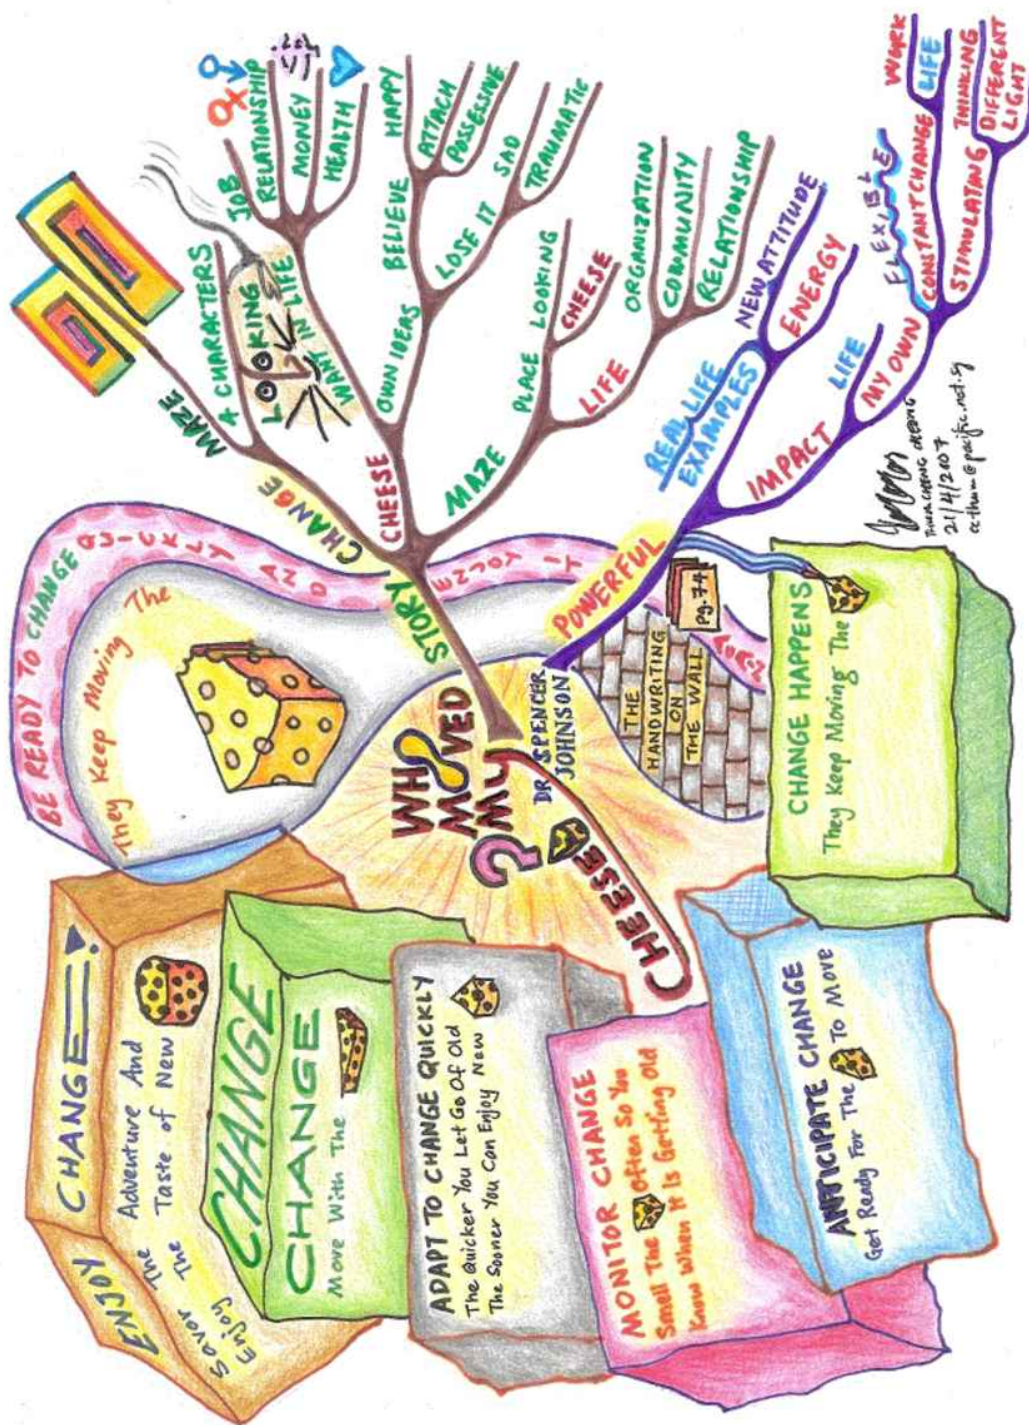 WHO
MOVED
MY
CHEESE
?
DR SPENCER
JOHNSON
STORY
CHANGE
CHANGE
MAZE
A CHARACTERS
LOOKING
WANT IN LIFE
JOB
RELATIONSHIP
MONEY
HEALTH
CHEESE
OWN IDEAS
BELIEVE
HAPPY
ATTACH
POSSESSIVE
LOSE IT
SAD
TRAUMATIC
MAZE
PLACE
LOOKING
CHEESE
LIFE
ORGANIZATION
COMMUNITY
RELATIONSHIP
POWERFUL
REAL LIFE
EXAMPLES
NEW ATTITUDE
ENERGY
IMPACT
LIFE
MY OWN
FLEXIBLE
CONSTANT CHANGE
WORK
LIFE
STIMULATING
THINKING
DIFFERENT
LIGHT
THUM CHENG CHEONG
21/4/2007
ccthum@pacific.net.sg
THE
HANDWRITING
ON
THE WALL
pg. 74
CHANGE HAPPENS
They Keep Moving The
ANTICIPATE CHANGE
Get Ready For The To Move
MONITOR CHANGE
Smell The Often So You
Know When It Is Getting Old
ADAPT TO CHANGE QUICKLY
The Quicker You Let Go Of Old
The Sooner You Can Enjoy New
CHANGE
CHANGE
Move With The
ENJOY CHANGE!
Savor The Adventure And
Enjoy The Taste of New
BE READY TO CHANGE QUICKLY AND ENJOY IT AGAIN
They Keep Moving The